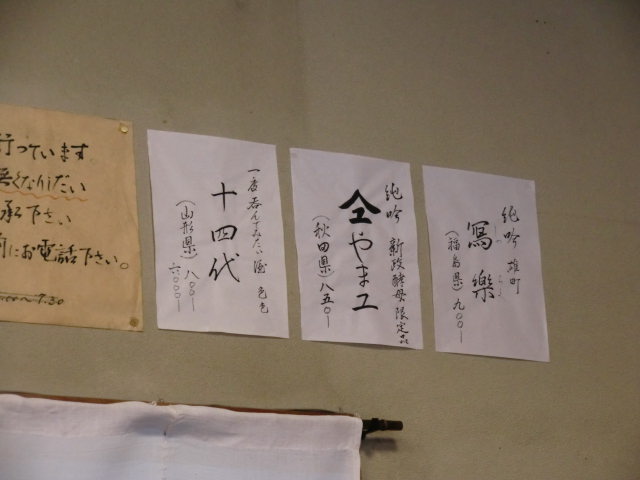 純吟 雄町
寫樂
しゃらく
(福島県) 九〇〇ー
純吟 新政酵母限定品
やまユ
(秋田県) 八五〇ー
一度呑んでみたい酒 色々
十四代
(山形県) 八〇〇ー
六〇〇〇ー
行っています
無くなりしだい
承下さい
前にお電話下さい。
7:30